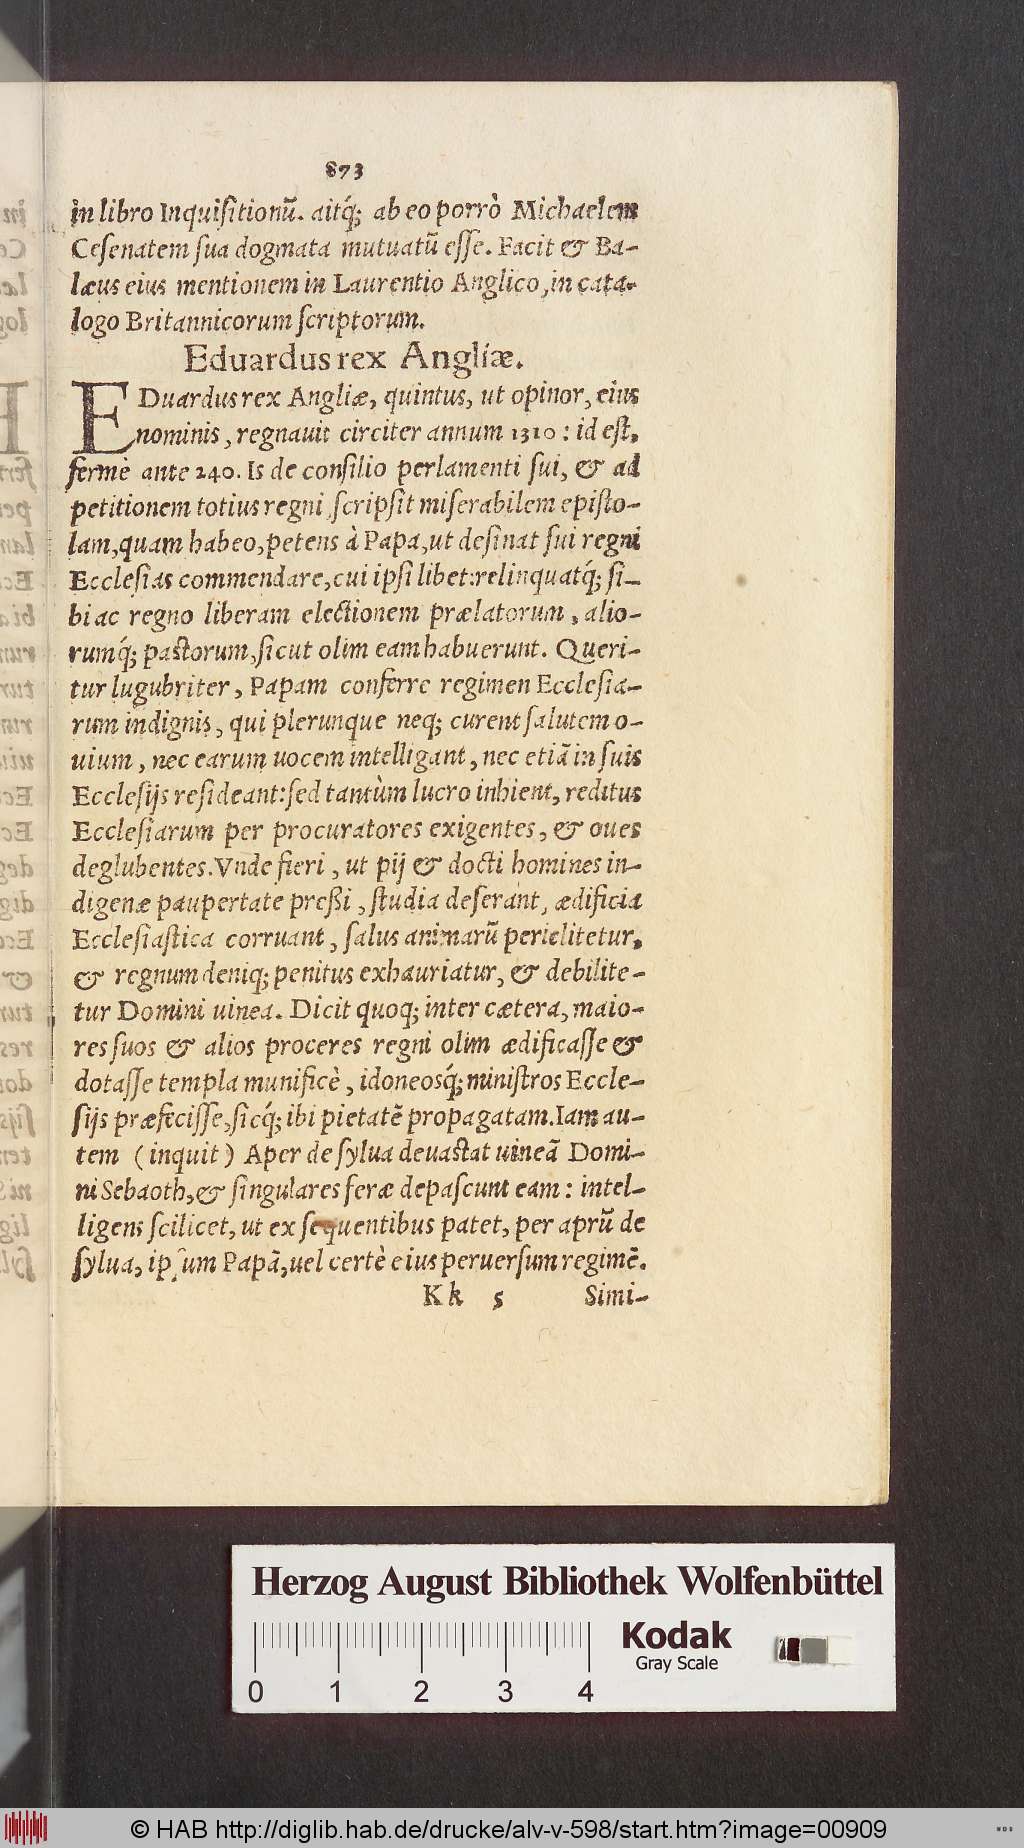 873
in libro Inquisitionũ. aitq́; ab eo porrò Michaelem
Cesenatem sua dogmata mutuatũ esse. Facit & Ba-
læus eius mentionem in Laurentio Anglico, in cata-
logo Britannicorum scriptorum.
Eduardus rex Angliæ.
EDuardus rex Angliæ, quintus, ut opinor, eius
nominis, regnauit circiter annum 1310: id est,
fermè ante 240. Is de consilio perlamenti sui, & ad
petitionem totius regni scripsit miserabilem episto-
lam, quam habeo, petens à Papa, ut desinat sui regni
Ecclesias commendare, cui ipsi libet: relinquatq́; si-
bi ac regno liberam electionem prælatorum, alio-
rumq́; pastorum, sicut olim eam habuerunt. Queri-
tur lugubriter, Papam conferre regimen Ecclesia-
rum indignis, qui plerunque neq; curent salutem o-
uium, nec earum uocem intelligant, nec etiã in suis
Ecclesijs resideant: sed tantùm lucro inhient, reditus
Ecclesiarum per procuratores exigentes, & oues
deglubentes. Vnde fieri, ut pij & docti homines in-
digenæ paupertate preßi, studia deserant, ædificia
Ecclesiastica corruant, salus animarũ periclitetur,
& regnum deniq; penitus exhauriatur, & debilite-
tur Domini uinea. Dicit quoq; inter cætera, maio-
res suos & alios proceres regni olim ædificasse &
dotasse templa munificè, idoneosq́; ministros Eccle-
sijs præfecisse, sicq́; ibi pietatẽ propagatam. Iam au-
tem (inquit) Aper de sylua deuastat uineã Domi-
ni Sebaoth, & singulares feræ depascunt eam: intel-
ligens scilicet, ut ex sequentibus patet, per aprũ de
sylua, ipsum Papã, uel certè eius peruersum regimẽ.
Kk 5 Simi-
Herzog August Bibliothek Wolfenbüttel
Kodak
Gray Scale
0 1 2 3 4
© HAB http://diglib.hab.de/drucke/alv-v-598/start.htm?image=00909